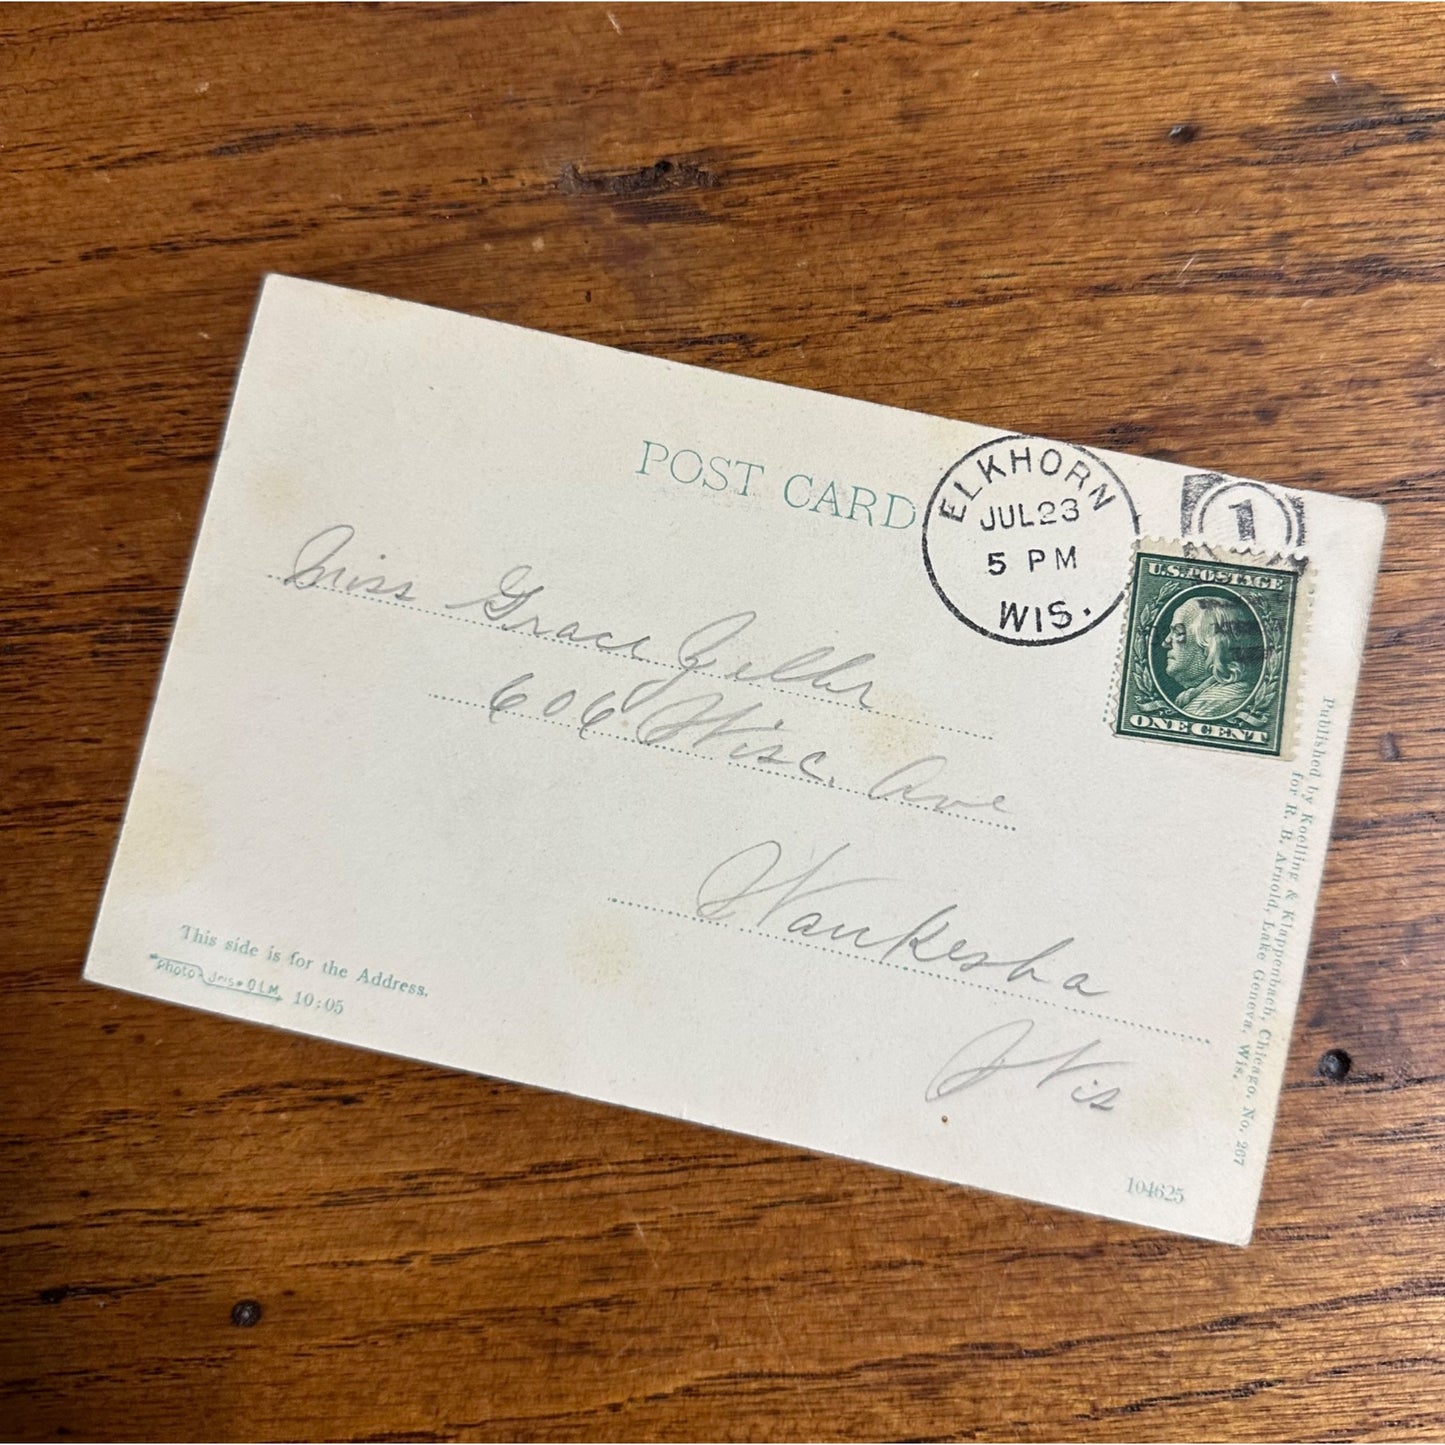 POST CARD
ELKHORN
JUL 23
5 PM
WIS.
1
U.S. POSTAGE
ONE CENT
Miss Grace Zeller
606 Wisc. Ave
Waukesha
Wis
This side is for the Address.
10:05
Published by Koelling & Klappenbach, Chicago, No. 267
for R. B. Arnold, Lake Geneva, Wis.
104625